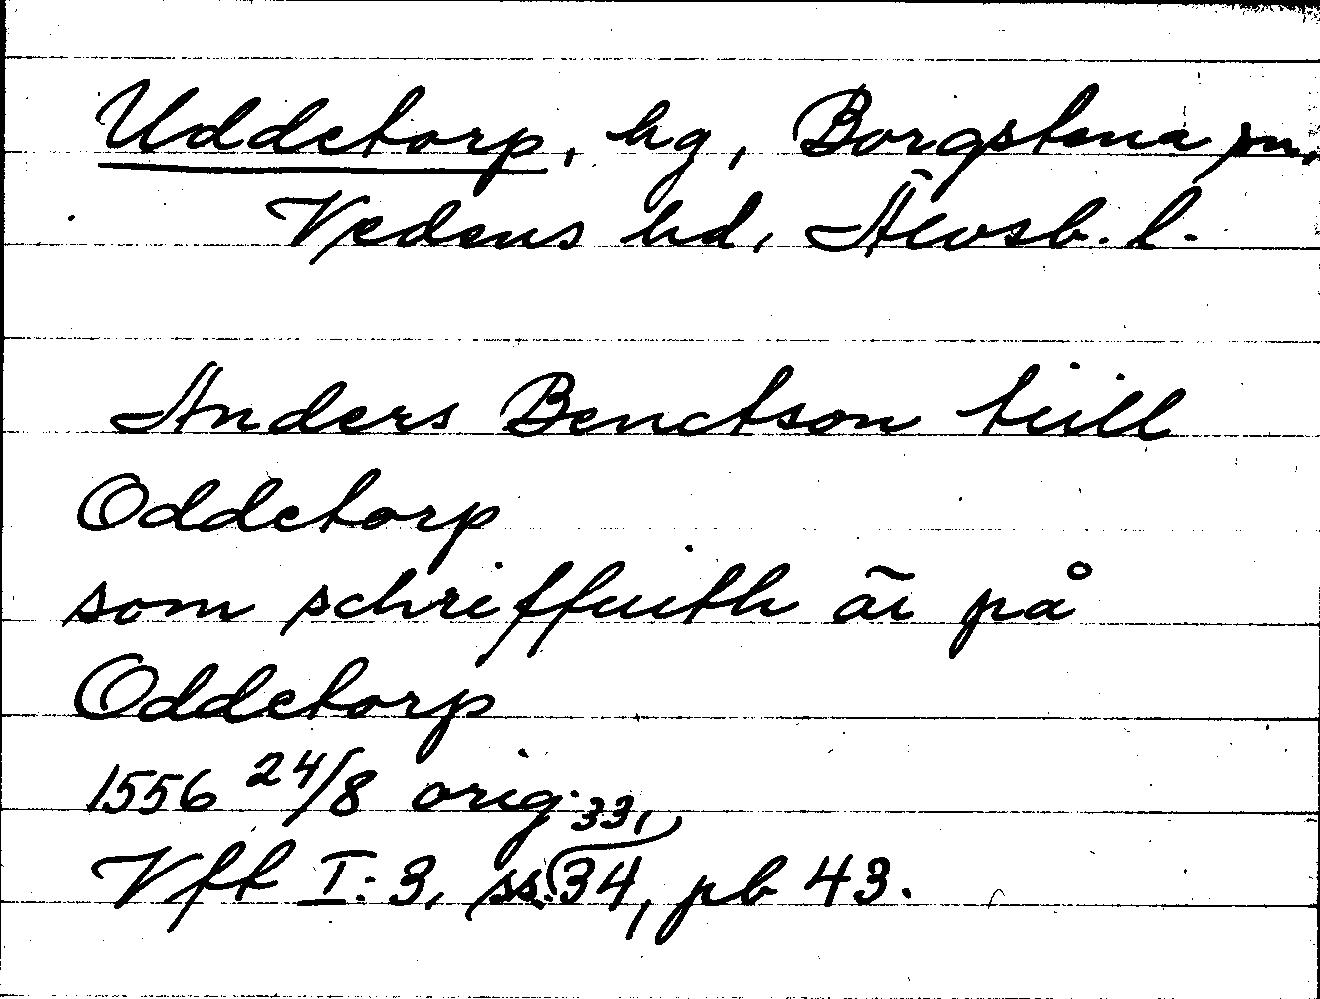 Uddetorp, hg, Borgstena sn,
Vedens hd, Älvsb. l.
Anders Benctson tiill
Oddetorp
som schriffuith är på
Oddetorp
1556 24/8 orig. 33,
Vft I: 3, ss. 34, pb 43.